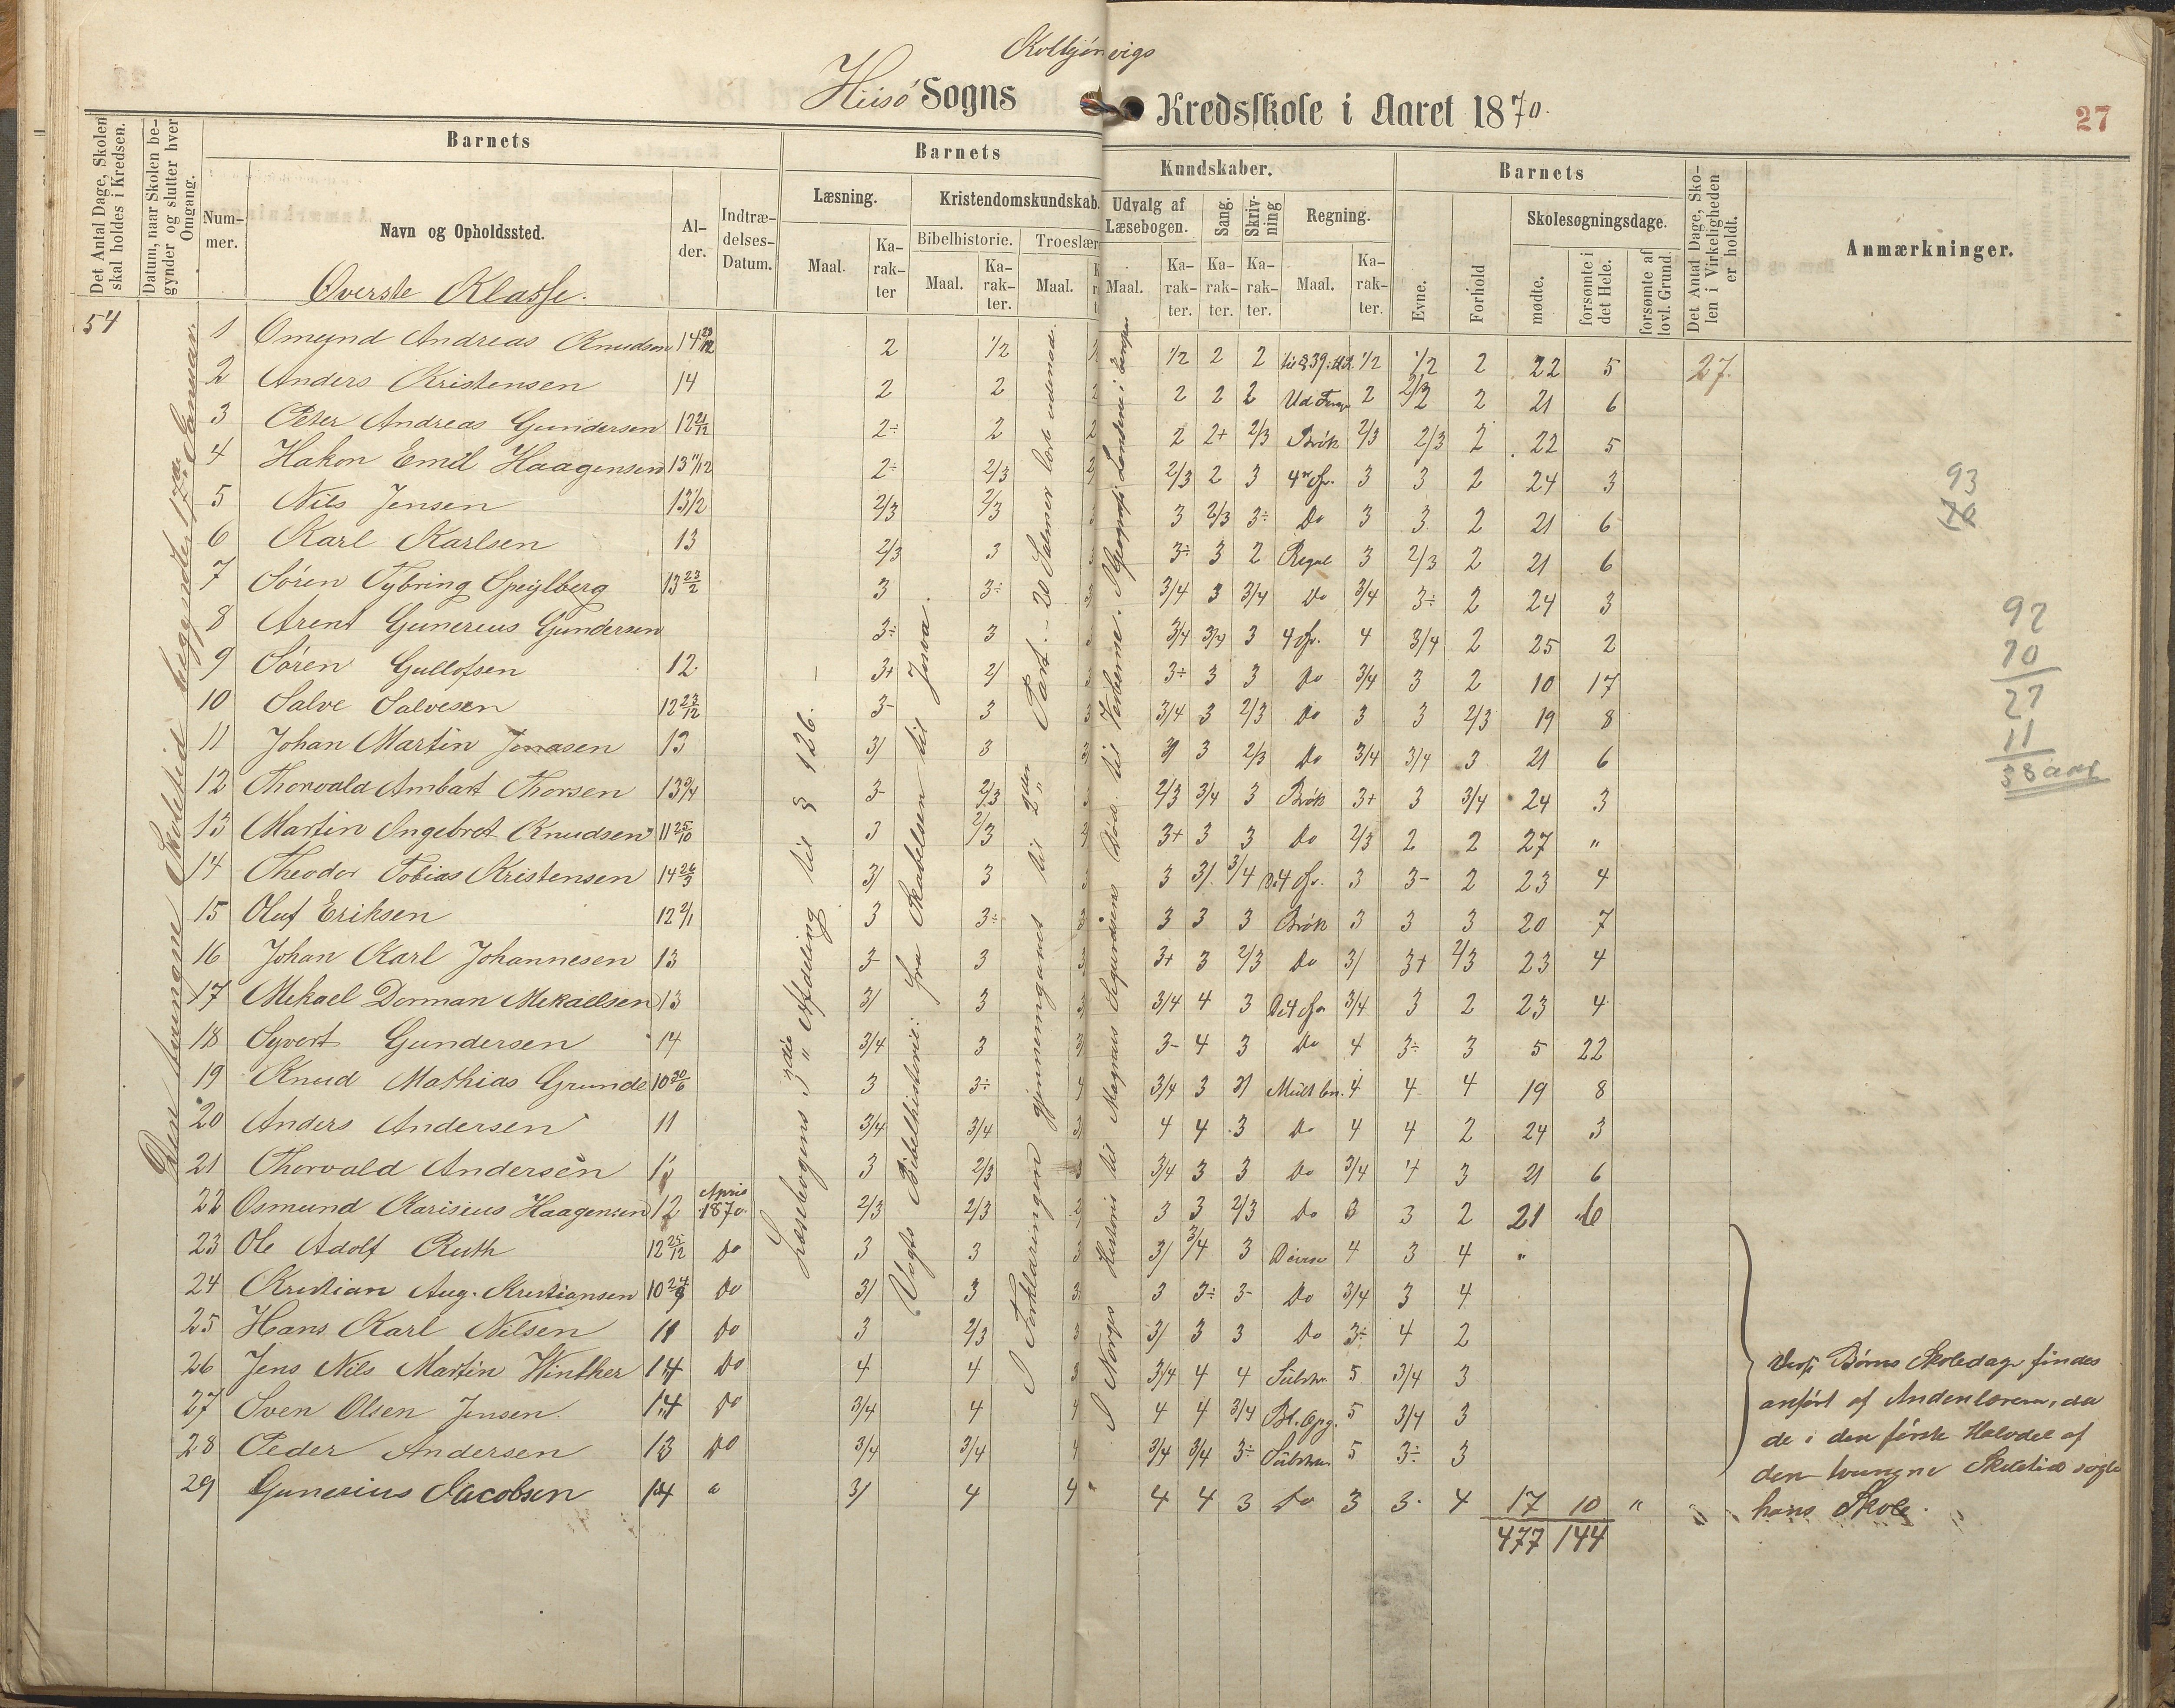 Kolbjörnvigs
Hisö Sogns Kredsskole i Aaret 1870.
27
Det Antal Dage, Skolen skal holdes i Kredsen.
Datum, naar Skolen begynder og slutter hver Omgang.
Barnets
Nummer.
Navn og Opholdssted.
Alder.
Indtrædelses-Datum.
Barnets
Læsning.
Maal.
Karakter
Kristendomskundskab.
Bibelhistorie.
Maal.
Karakter.
Troeslær
Maal.
Kundskaber.
Udvalg af Læsebogen.
Maal.
Karakter.
Sang.
Karakter.
Skrivning
Karakter.
Regning.
Maal.
Karakter.
Barnets
Evne.
Forhold
Skolesøgningsdage.
mødte.
forsømte i det Hele.
forsømte af lovl. Grund.
Det Antal Dage, Skolen i Virkeligheden er holdt.
Anmærkninger.
Øverste Klasse.
54
Den tvungne Skoletid begyndte 17de Januar.
Læsebogens 3die Afdeling til § 126.
Vogts Bibelhistorie: fra Skabelsen til Josva.
I Forklaringen gjennemgaaet til 2den Part. - 20 Salmer lærte udenad.
I Norges Historie til Magnus Sigurdsens Død.
1 Omund Andreas Knudsen 14 23/12 2 1/2 1/2 2 2 1/2 1/2 2 22 5 27.
2 Anders Kristensen 14 2 2 2 2 2 2 2 2/3 2 21 6
3 Peter Andreas Gundersen 12 21/12 2÷ 2 2 2 2+ 2/3 Brök 2/3 2/3 2 22 5
4 Hakon Emil Haagensen 13 11/12 2÷ 2/3 2/3 2 3 3 3 2 24 3
5 Nils Jensen 13 1/2 2/3 2/3 3 2/3 3÷ Do 3 3 2 21 6
6 Karl Karlsen 13 2/3 3 3÷ 3 2 Regul 3 2/3 2 21 6
7 Sören Tybring Speilberg 13 23/2 3 3÷ 3/4 3 3/4 Do 3/4 3÷ 2 24 3
8 Arent Gunerius Gundersen 3÷ 3 3/4 3/4 3 4 3/4 2 25 2
9 Sören Gullofsen 12. 3+ 2/ 3÷ 3 3 Do 3/4 3 2 10 17
10 Salve Salvesen 12 23/12 3- 3 3/4 3 2/3 Do 3 3 2/3 19 8
11 Johan Martin Jonasen 13 3/ 3 3/ 3 2/3 Do 3/4 3/4 3 21 6
12 Thorvald Ambart Thorsen 13 3- 2/3 2/3 3/4 3 Brök 3+ 3 3/4 24 3
13 Martin Ingebret Knudsen 11 25/10 3 2/3 3+ 3 3 Do 2/3 2 2 27 "
14 Theodor Tobias Kristensen 14 26/3 3/ 3 3 3/ 3/4 3 3- 2 23 4
15 Oluf Eriksen 12 2/1 3 3÷ 3 3 3 Brök 3 3 3 20 7
16 Johan Karl Johannesen 13 3- 3 3+ 3 2/3 Do 3/ 3+ 2/3 23 4
17 Mekael Dorman Mekaelsen 13 3/ 3 3/4 4 3 3/4 3 2 23 4
18 Syvert Gundersen 14 3/4 3 3- 4 3 Do 4 3÷ 3 5 22
19 Knud Mathias Grunde 10 30/6 3 3÷ 3/4 3 3/ 4 4 4 19 8
20 Anders Andersen 11 3/4 3/4 4 4 3 Do 4 4 2 24 3
21 Thorvald Andersen 3 2/3 3/4 3 3 Do 3/4 4 3 21 6
22 Osmund Karisius Haagensen 12 April 1870. 2/3 2/3 3 3 2/3 Do 3 3 2 21 6
23 Ole Adolf Ruth 12 25/12 Do 3 3 3/ 3/4 3 4 3 4 "
24 Kristian Aug. Kristiansen 10 24/9 Do 3/ 3 3 3÷ 3- Do 3/4 3 4
25 Hans Karl Nilsen 11 Do 3 2/3 3/ 3 3 Do 3÷ 4 2
26 Jens Nils Martin Winther 14 Do 4 4 3/4 4 4 5 3/4 3
27 Sven Olsen Jensen 14 Do 3/4 4 4 4 3/4 5 3/4 3
28 Peder Andersen 13 Do 3/4 3/4 3/4 3/4 3÷ 5 3÷ 3
29 Gunerius Jacobsen 14 3/ 4 4 4 3 Do 3 3 4 17 10 "
477 144
93
92
70
27
11
38
Disse Börns Skoledage findes
anfört af Andenlæreren, da
de i den förste Halvdel af
den tvungne Skoletid sögte
hans Skole.